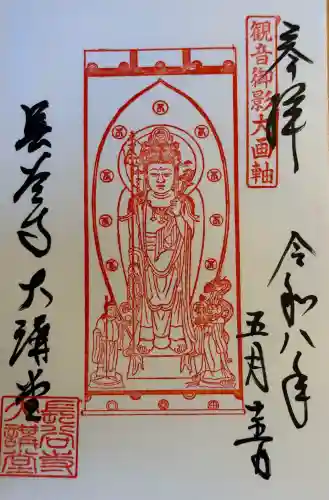 奉拝
観音御影大画軸
令和八年
五月十五日
長谷寺大講堂
長谷寺
大講堂